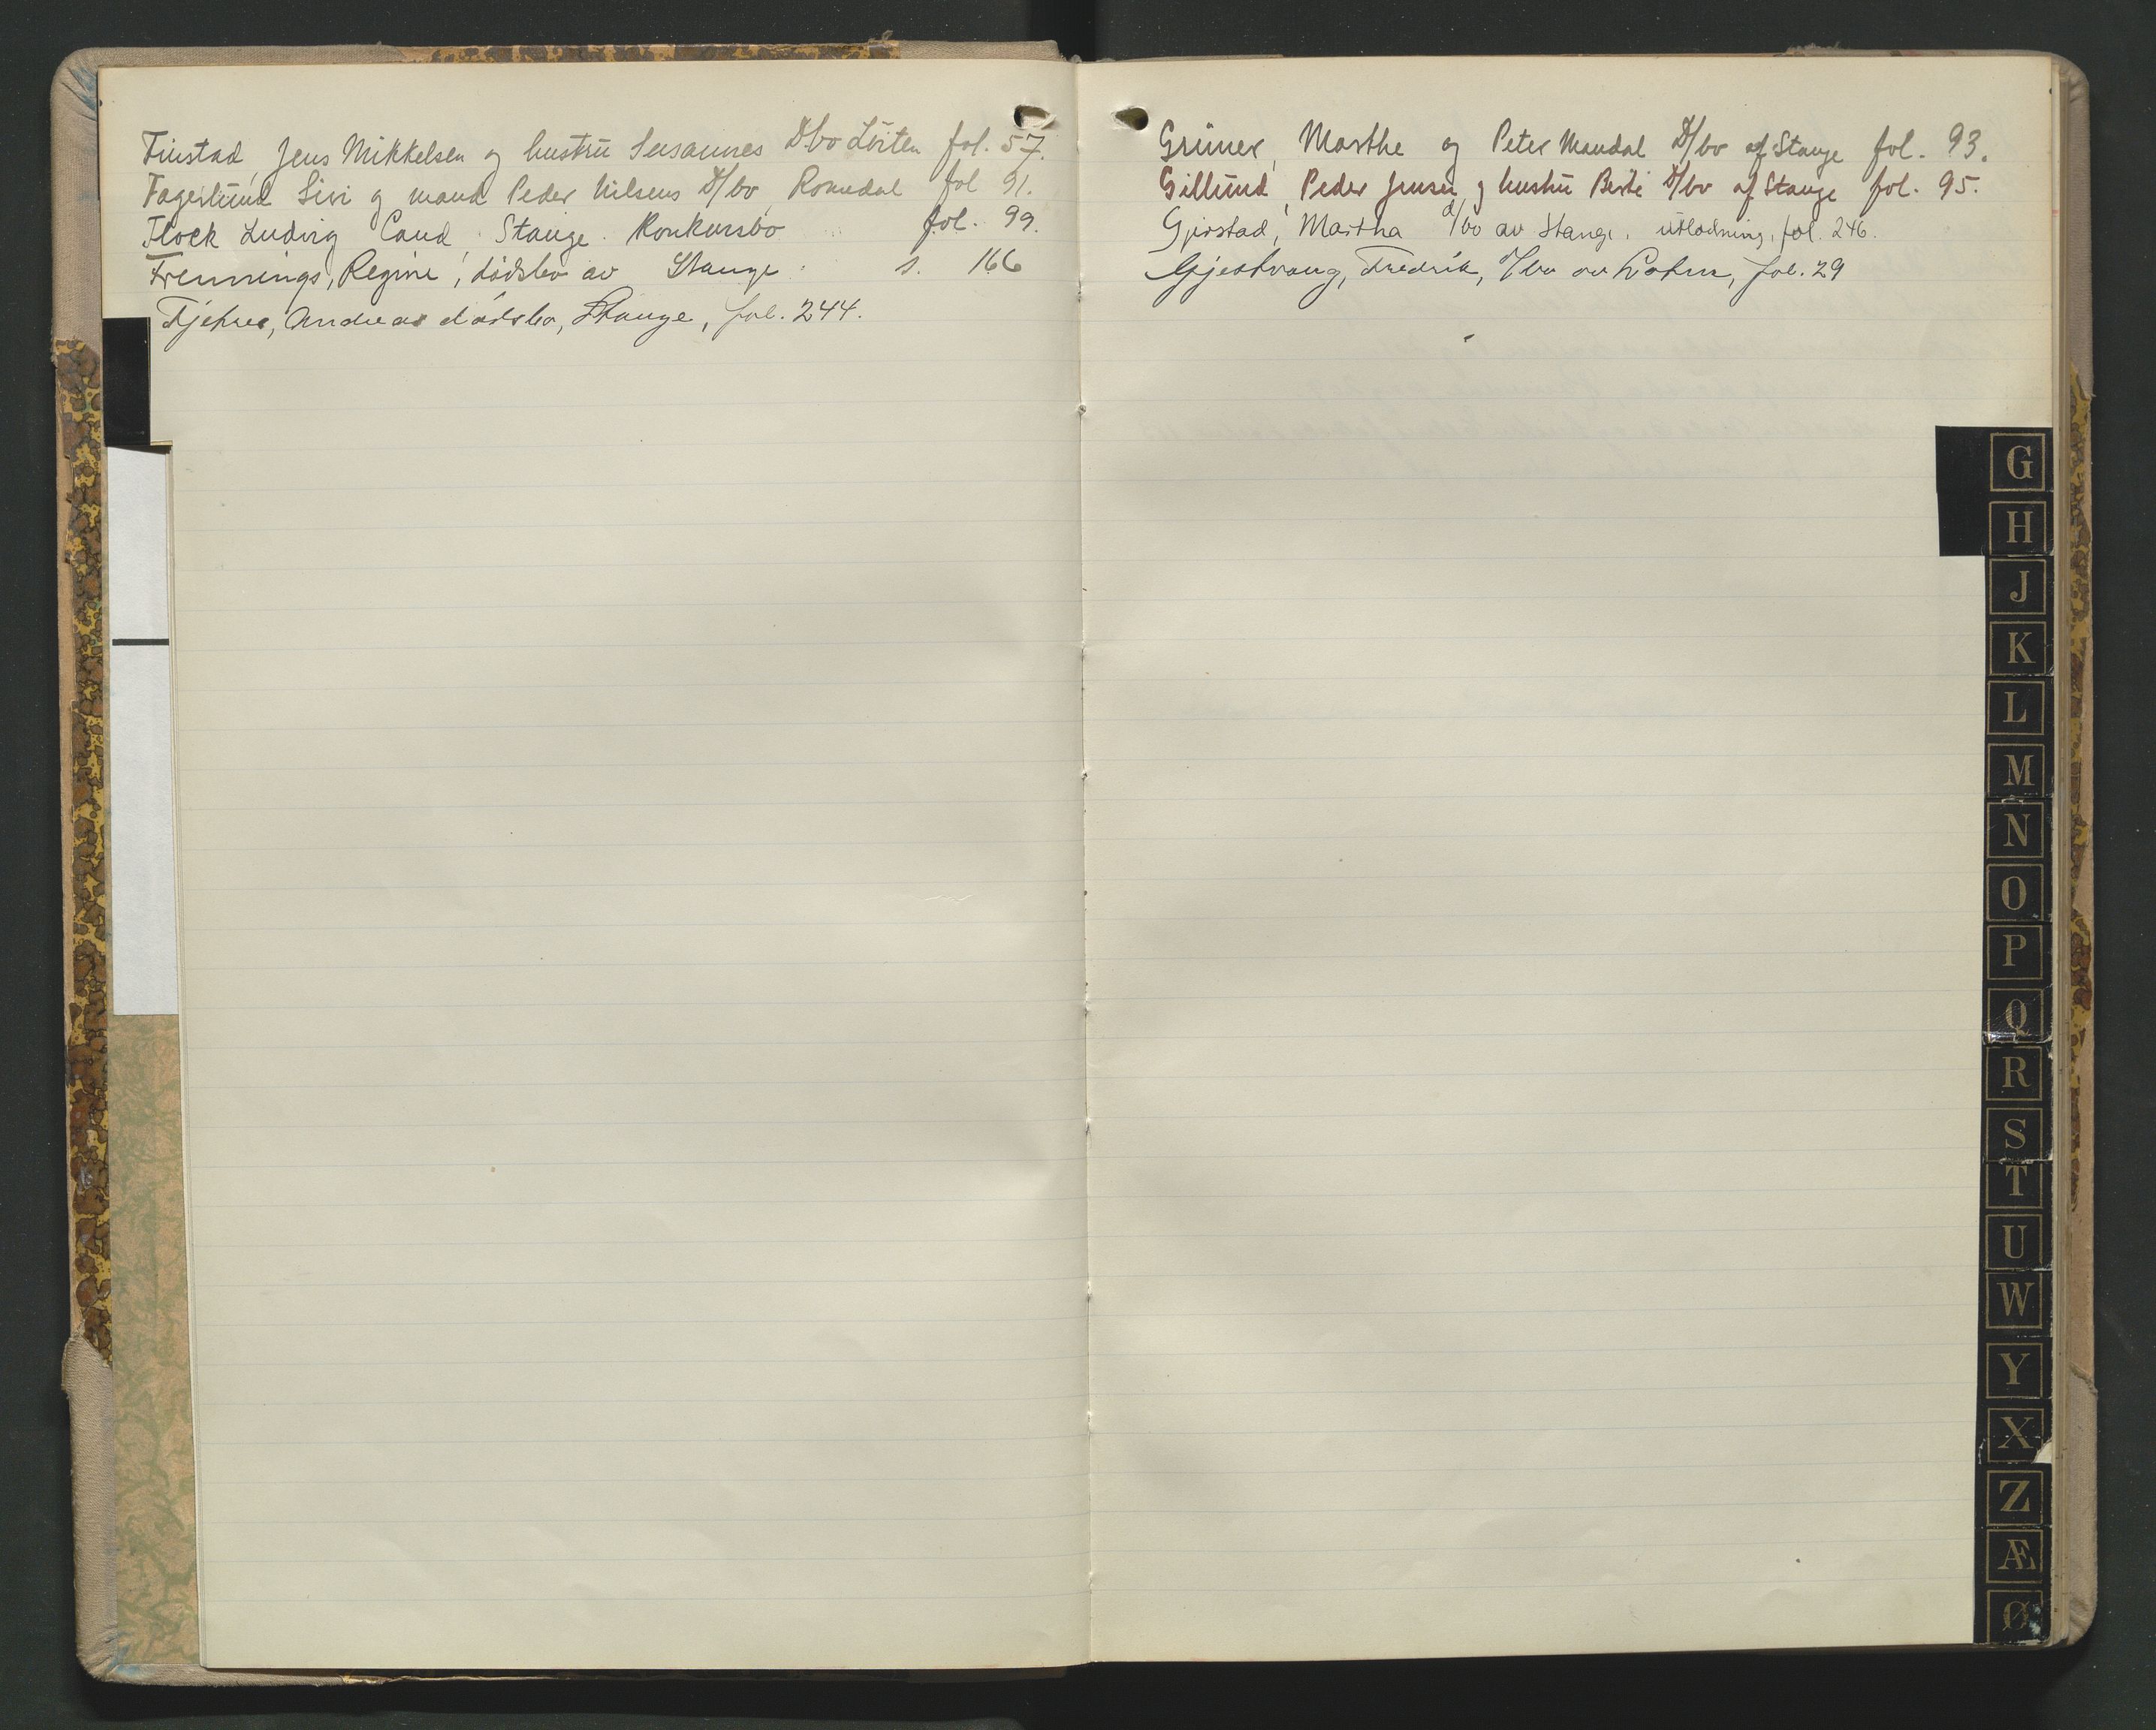 Finstad, Jens Mikkelsen og hustru Susannes Dbo Löiten fol. 57.
Fagerlund Sivi og mand Peder Nilsens D/bo, Romedal fol 91.
Flock Ludvig Cand. Stange. Konkursbo fol. 99.
Frennings, Regine, dödsbo av Stange. s. 166
Andreas dødsbo, Stange, fol. 244.
Grüner, Marthe og Peter Mandal D/bo af Stange fol. 93.
Gillund, Peder Jensen og hustru Berte D/bo af Stange fol. 95.
Gjørstad, Martha d/bo av Stange, utlodning, fol. 246.
Gjestvang, Fredrik, d/bo av fol. 29
G
H
J
K
L
M
N
O
P
Q
R
S
T
U
W
Y
X
Z
Æ
Ø